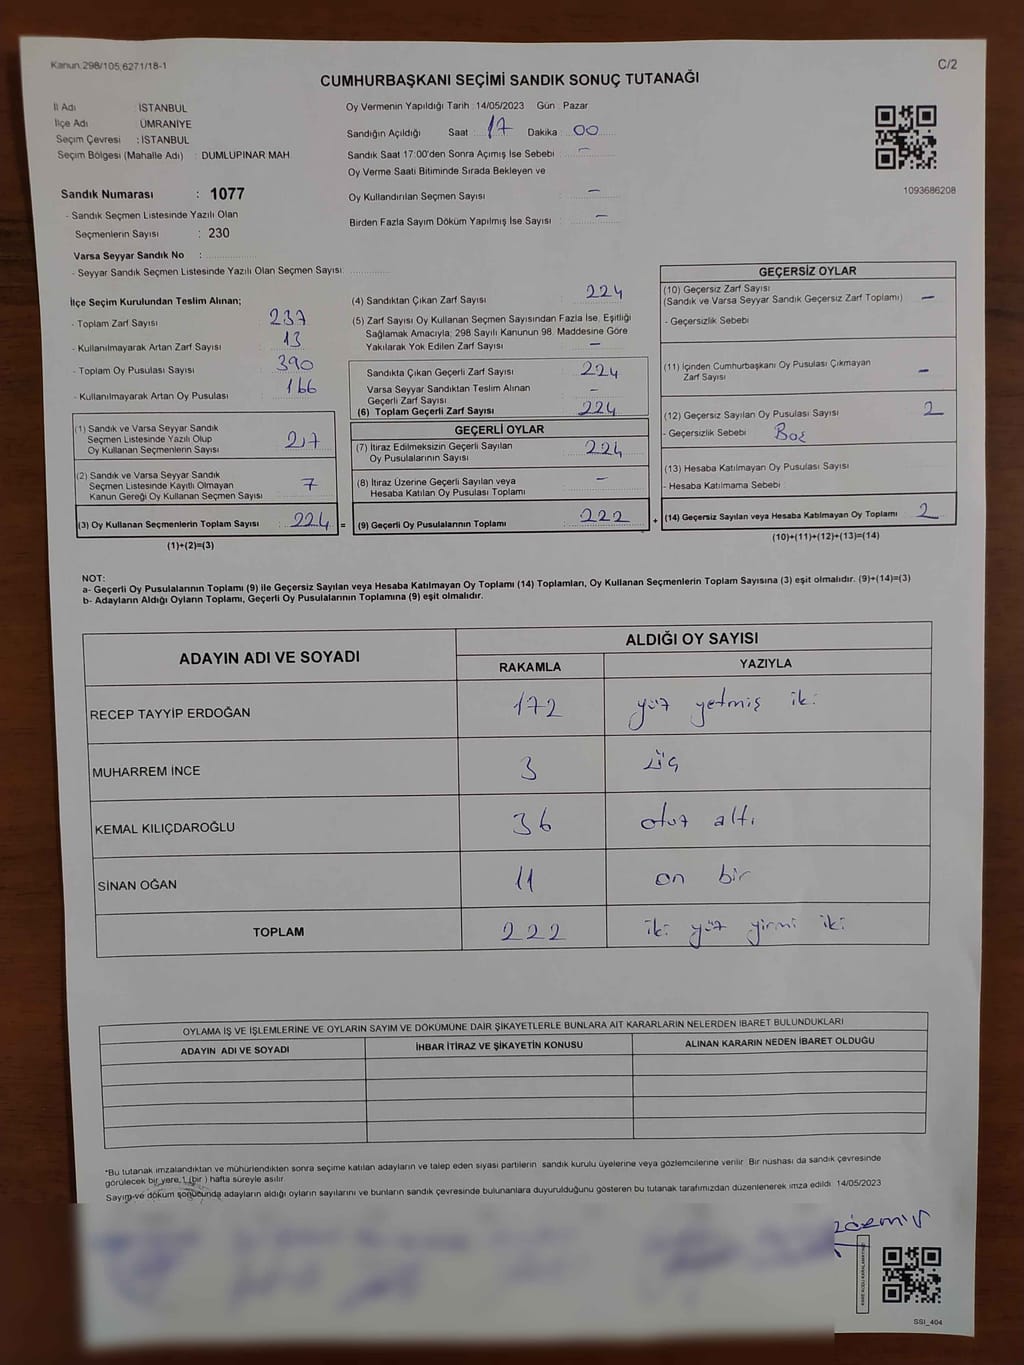 Kanun.298/105,6271/18-1
C/2
CUMHURBAŞKANI SEÇİMİ SANDIK SONUÇ TUTANAĞI
İl Adı : İSTANBUL
İlçe Adı : ÜMRANİYE
Seçim Çevresi : İSTANBUL
Seçim Bölgesi (Mahalle Adı) : DUMLUPINAR MAH
Sandık Numarası : 1077
- Sandık Seçmen Listesinde Yazılı Olan
Seçmenlerin Sayısı : 230
Varsa Seyyar Sandık No :
- Seyyar Sandık Seçmen Listesinde Yazılı Olan Seçmen Sayısı:
Oy Vermenin Yapıldığı Tarih : 14/05/2023 Gün : Pazar
Sandığın Açıldığı Saat : 17 Dakika : 00
Sandık Saat 17:00'den Sonra Açımış İse Sebebi : -
Oy Verme Saati Bitiminde Sırada Bekleyen ve
Oy Kullandırılan Seçmen Sayısı : -
Birden Fazla Sayım Döküm Yapılmış İse Sayısı : -
1093686208
İlçe Seçim Kurulundan Teslim Alınan;
- Toplam Zarf Sayısı : 237
- Kullanılmayarak Artan Zarf Sayısı : 13
- Toplam Oy Pusulası Sayısı : 390
- Kullanılmayarak Artan Oy Pusulası : 166
(1) Sandık ve Varsa Seyyar Sandık
Seçmen Listesinde Yazılı Olup
Oy Kullanan Seçmenlerin Sayısı : 217
(2) Sandık ve Varsa Seyyar Sandık
Seçmen Listesinde Kayıtlı Olmayan
Kanun Gereği Oy Kullanan Seçmen Sayısı : 7
(3) Oy Kullanan Seçmenlerin Toplam Sayısı : 224 =
(1)+(2)=(3)
(4) Sandıktan Çıkan Zarf Sayısı : 224
(5) Zarf Sayısı Oy Kullanan Seçmen Sayısından Fazla İse, Eşitliği
Sağlamak Amacıyla; 298 Sayılı Kanunun 98. Maddesine Göre
Yakılarak Yok Edilen Zarf Sayısı : -
Sandıkta Çıkan Geçerli Zarf Sayısı : 224
Varsa Seyyar Sandıktan Teslim Alınan
Geçerli Zarf Sayısı : -
(6) Toplam Geçerli Zarf Sayısı : 224
GEÇERLİ OYLAR
(7) İtiraz Edilmeksizin Geçerli Sayılan
Oy Pusulalarının Sayısı : 224
(8) İtiraz Üzerine Geçerli Sayılan veya
Hesaba Katılan Oy Pusulası Toplamı : -
(9) Geçerli Oy Pusulalarının Toplamı : 222 +
GEÇERSİZ OYLAR
(10) Geçersiz Zarf Sayısı
(Sandık ve Varsa Seyyar Sandık Geçersiz Zarf Toplamı) -
- Geçersizlik Sebebi :
(11) İçinden Cumhurbaşkanı Oy Pusulası Çıkmayan
Zarf Sayısı -
(12) Geçersiz Sayılan Oy Pusulası Sayısı 2
- Geçersizlik Sebebi : Boş
(13) Hesaba Katılmayan Oy Pusulası Sayısı
- Hesaba Katılmama Sebebi :
(14) Geçersiz Sayılan veya Hesaba Katılmayan Oy Toplamı : 2
(10)+(11)+(12)+(13)=(14)
NOT:
a- Geçerli Oy Pusulalarının Toplamı (9) ile Geçersiz Sayılan veya Hesaba Katılmayan Oy Toplamı (14) Toplamları, Oy Kullanan Seçmenlerin Toplam Sayısına (3) eşit olmalıdır. (9)+(14)=(3)
b- Adayların Aldığı Oyların Toplamı, Geçerli Oy Pusulalarının Toplamına (9) eşit olmalıdır.
ADAYIN ADI VE SOYADI ALDIĞI OY SAYISI
RAKAMLA YAZIYLA
RECEP TAYYİP ERDOĞAN 172 yüz yetmiş iki
MUHARREM İNCE 3 üç
KEMAL KILIÇDAROĞLU 36 otuz altı
SİNAN OĞAN 11 on bir
TOPLAM 222 iki yüz yirmi iki
OYLAMA İŞ VE İŞLEMLERİNE VE OYLARIN SAYIM VE DÖKÜMÜNE DAİR ŞİKAYETLERLE BUNLARA AİT KARARLARIN NELERDEN İBARET BULUNDUKLARI
ADAYIN ADI VE SOYADI İHBAR İTİRAZ VE ŞİKAYETİN KONUSU ALINAN KARARIN NEDEN İBARET OLDUĞU
*Bu tutanak imzalandıktan ve mühürlendikten sonra seçime katılan adayların ve talep eden siyasi partilerin sandık kurulu üyelerine veya gözlemcilerine verilir. Bir nüshası da sandık çevresinde
görülecek bir yere 1 (bir) hafta süreyle asılır.
Sayım ve döküm sonucunda adayların aldığı oyların sayılarını ve bunların sandık çevresinde bulunanlara duyurulduğunu gösteren bu tutanak tarafımızdan düzenlenerek imza edildi. 14/05/2023
SSI_404